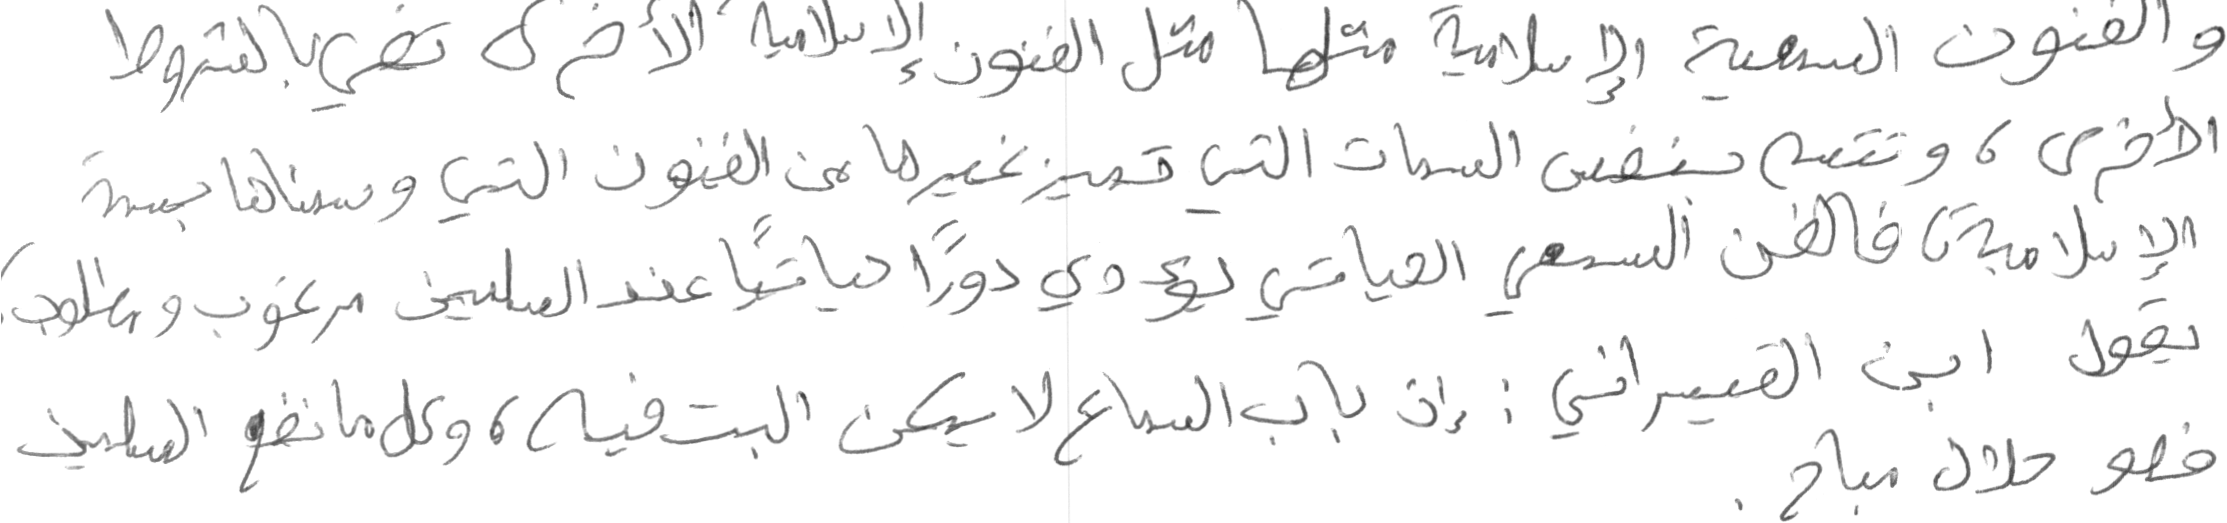 والفنون السمعية الإسلامية مثلها مثل الفنون الإسلامية الأخرى تفي بالشروط
الأخرى، وتتسم بنفس السمات التي تميز غيرها من الفنون التي وسمناها بسمة
الإسلامية، فالفن السمعي الحياتي يؤدي دورًا حياتيًا عند المسلمين مرغوب ومطلوب،
يقول ابن القيسراني: إن باب السماع لا يمكن البت فيه، وكل ما نفع المسلمين
فهو حلال مباح.